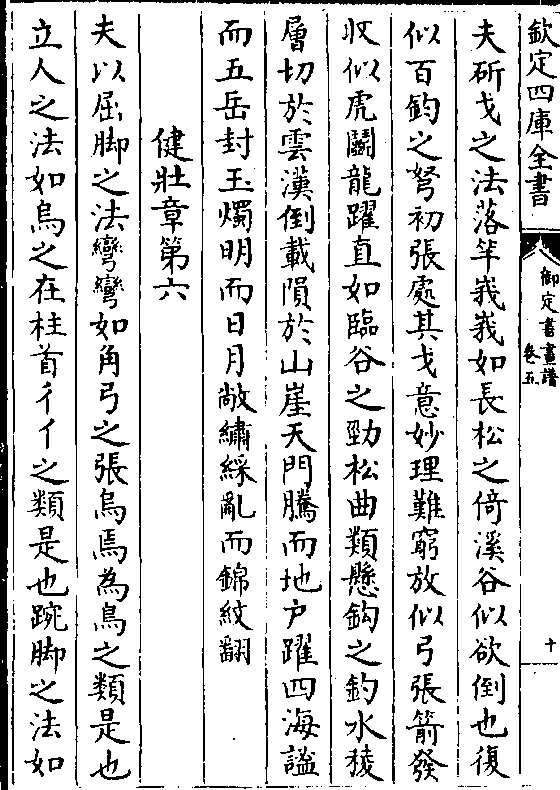 欽定四庫全書
御定書畫譜
卷五
十
夫斫戈之法落竿峩峩如長松之倚溪谷似欲倒也復
似百鈞之弩初張處其戈意妙理難窮放似弓張箭發
收似虎鬭龍躍直如臨谷之勁松曲類懸鈎之釣水稜
層切於雲漢倒載隕於山崖天門騰而地户躍四海謐
而五岳封玉燭明而日月敞繡綵亂而錦紋翻
健壯章第六
夫以屈脚之法彎彎如角弓之張烏焉為鳥之類是也
立人之法如烏之在柱首彳亻之類是也踠脚之法如